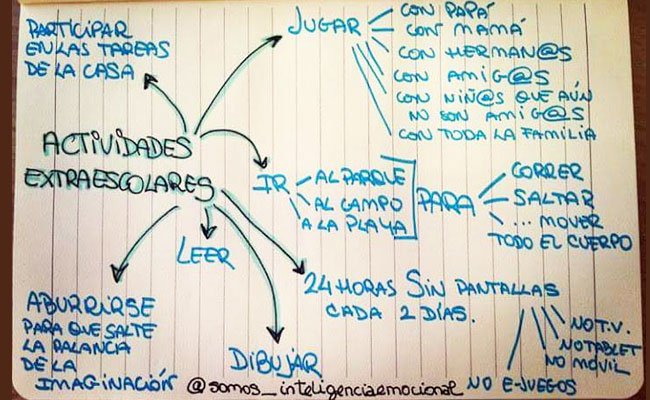 ACTIVIDADES
EXTRAESCOLARES
PARTICIPAR
EN LAS TAREAS
DE LA CASA
JUGAR
CON PAPÁ
CON MAMÁ
CON HERMAN@S
CON AMIG@S
CON NIÑ@S QUE AÚN
NO SON AMIG@S
CON TODA LA FAMILIA
IR
AL PARQUE
AL CAMPO
A LA PLAYA
PARA
CORRER
SALTAR
... MOVER
TODO EL CUERPO
LEER
24 HORAS SIN PANTALLAS
CADA 2 DÍAS.
NO T.V.
NO TABLET
NO MÓVIL
NO E-JUEGOS
DIBUJAR
ABURRIRSE
PARA QUE SALTE
LA PALANCA
DE LA
IMAGINACIÓN
@somos_inteligenciaemocional